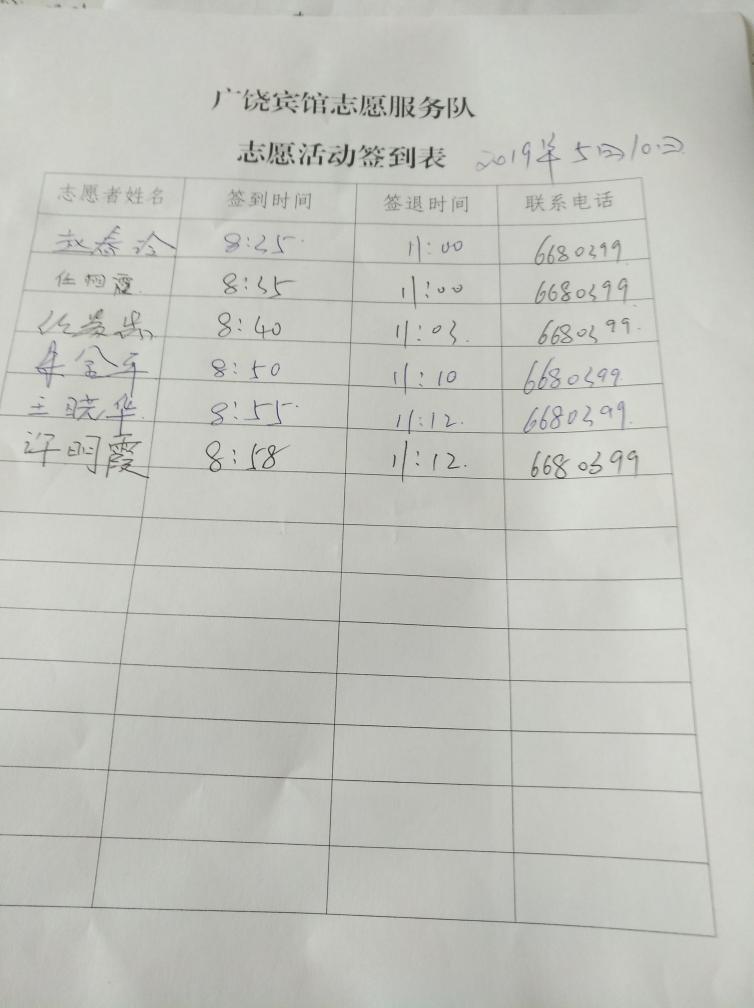 广饶宾馆志愿服务队
志愿活动签到表 2019年5月10日
志愿者姓名 签到时间 签退时间 联系电话
赵春玲 8:25 11:00 6680399
任桐霞 8:35 11:00 6680399
8:40 11:03 6680399
朱金平 8:50 11:10 6680399
王晓华 8:55 11:12 6680399
许明霞 8:58 11:12 6680399